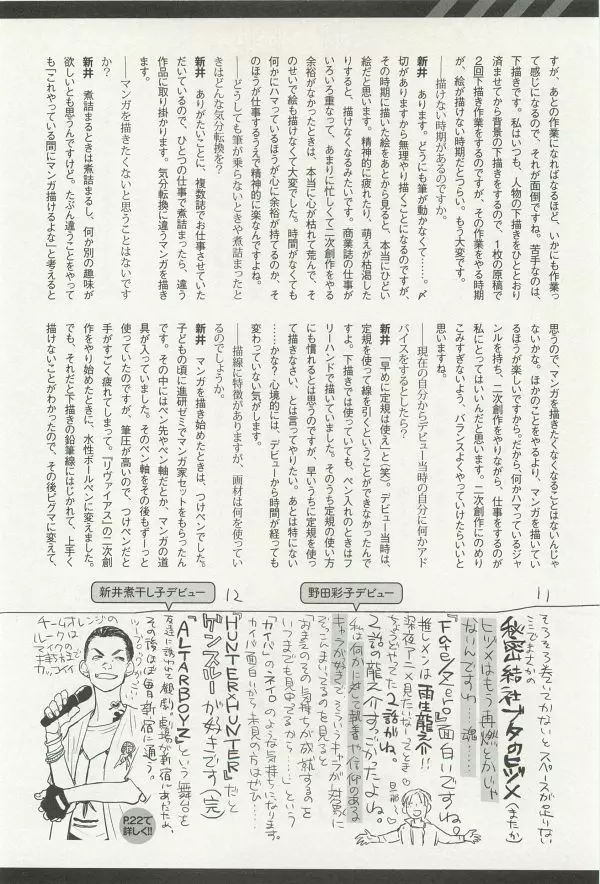 すが、あとの作業になればなるほど、いかにも作業っ
て感じになるので、それが面倒ですね。苦手なのは、
下描きです。私はいつも、人物の下描きをひととおり
済ませてから背景の下描きをするので、1枚の原稿で
2回下描き作業をするのですが、その作業をやる時期
が、絵が描けない時期だとつらい。もう大変です。
──描けない時期があるのですか。
新井　あります。どうにも筆が動かなくて……。〆
切がありますから無理やり描くことになるのですが、
その時期に描いた絵をあとから見ると、本当にひどい
絵だと思います。精神的に疲れたり、萌えが枯渇した
りすると、描けなくなるみたいです。商業誌の仕事が
いろいろ重なって、あまりに忙しくて二次創作をやる
余裕がなかったときは、本当に心が枯れて荒んで、そ
のせいで絵も描けなくて大変でした。時間がなくても
何かにハマっているほうが心に余裕が持てるのか、そ
のほうが仕事するうえで精神的に楽なんですよね。
──どうしても筆が乗らないときや煮詰まったと
きはどんな気分転換を?
新井　ありがたいことに、複数誌でお仕事させていた
だいているので、ひとつの仕事で煮詰まったら、違う
作品に取り掛かります。気分転換に違うマンガを描き
ます。
──マンガを描きたくないと思うことはないです
か?
新井　煮詰まるときは煮詰まるし、何か別の趣味が
欲しいとも思うんですけど。たぶん違うことをやって
も「これやっている間にマンガ描けるよな」と考えると
思うので、マンガを描きたくなくなることはないんじゃ
ないかな。ほかのことをやるより、マンガを描いてい
るほうが楽しいですから。だから、何かハマっているジャ
ンルを持ち、二次創作をやりながら、仕事をするのが
私にとってはいいんだと思います。二次創作にのめり
こみすぎないよう、バランスよくやっていけたらいいと
思いますね。
──現在の自分からデビュー当時の自分に何かアド
バイスをするとしたら?
新井　「早めに定規は使え」と(笑)。デビュー当時は、
定規を使って線を引くということができなかったんで
すよ。下描きでは使っていても、ペン入れのときはフ
リーハンドで描いていました。そのうち定規の使い方
にも慣れるとは思うのですが、早いうちに定規を使っ
て描きなさい、とは言ってやりたい。あとは特にない
……かな?心境的には、デビューから時間が経っても
変わっていない気がします。
──描線に特徴がありますが、画材は何を使ってい
るのでしょうか。
新井　マンガを描き始めたときは、つけペンでした。
子どもの頃に進研ゼミでマンガ家セットをもらったん
です。その中にはペン先やペン軸だとか、マンガの道
具が入っていました。そのペン軸をその後もずーっと
使っていたのですが、筆圧が高いので、つけペンだと
手がすごく疲れてしまって。『リヴァイアス』の二次創
作をやり始めたときに、水性ボールペンに変えました。
でも、それだと下描きの鉛筆線にはじかれて、上手く
描けないことがわかったので、その後ピグマに変えて、
11
そろそろ巻いてかないとスペースが足りない
ここでまさかの
秘密結社ブタのヒヅメ(またか)
ヒヅメはもう再燃とかじゃ
ないんですわ…魂…
野田彩子デビュー
『Fate/Zero』面白いですね。
推しメンは雨生龍之介!!
深夜アニメ見たいな〜ってとき
ちょうどやってた2話がね。
2話の龍之介すごかったよね。
私は何かに対して執着や信仰のある
キャラが好きで、そういうキャラが対象に
12
新井煮干し子デビュー
いつまでも見守ってるから……!という
『カイバ』のネイロのような気持ちになります。
カイバ面白いから未見の方はぜひ…。
『HUNTER×HUNTER』だと
ゲンスルーが好きです(完)
『ALTARBOYZ』という舞台を
友達に誘われて観劇、劇場が新宿にあったため、
その後ほぼ毎日新宿に通う。
オレンジの
P.22で
詳しく!!